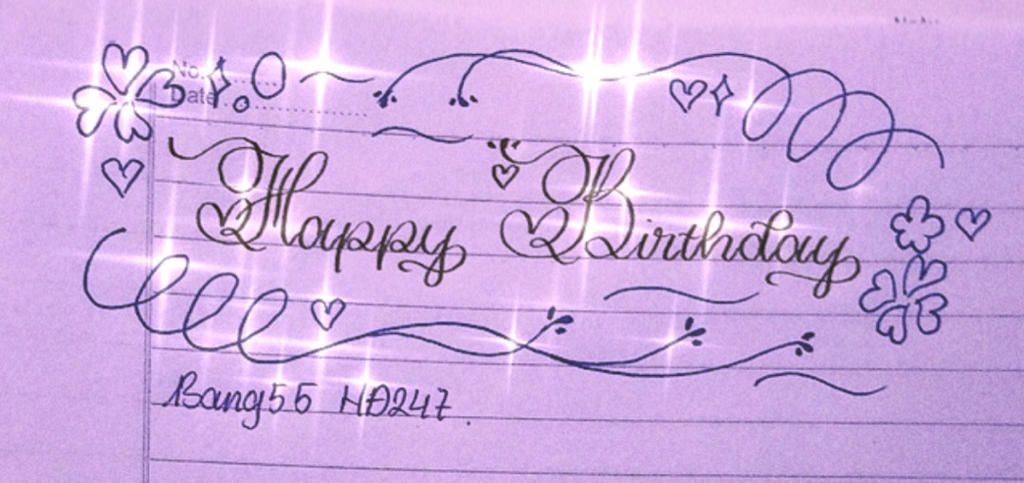 No.
Date
Happy Birthday
Bang55 HĐ247.